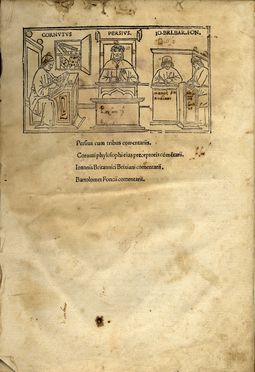 CORNVTVS PERSIVS IO.BRI.BAR.FON.
Persius cum tribus comentariis.
Cornuti phylosophi eius præceptoris cōmētarii.
Ioannis Britannici Brixiani comentarii.
Bartolomei Foncii comentarii.